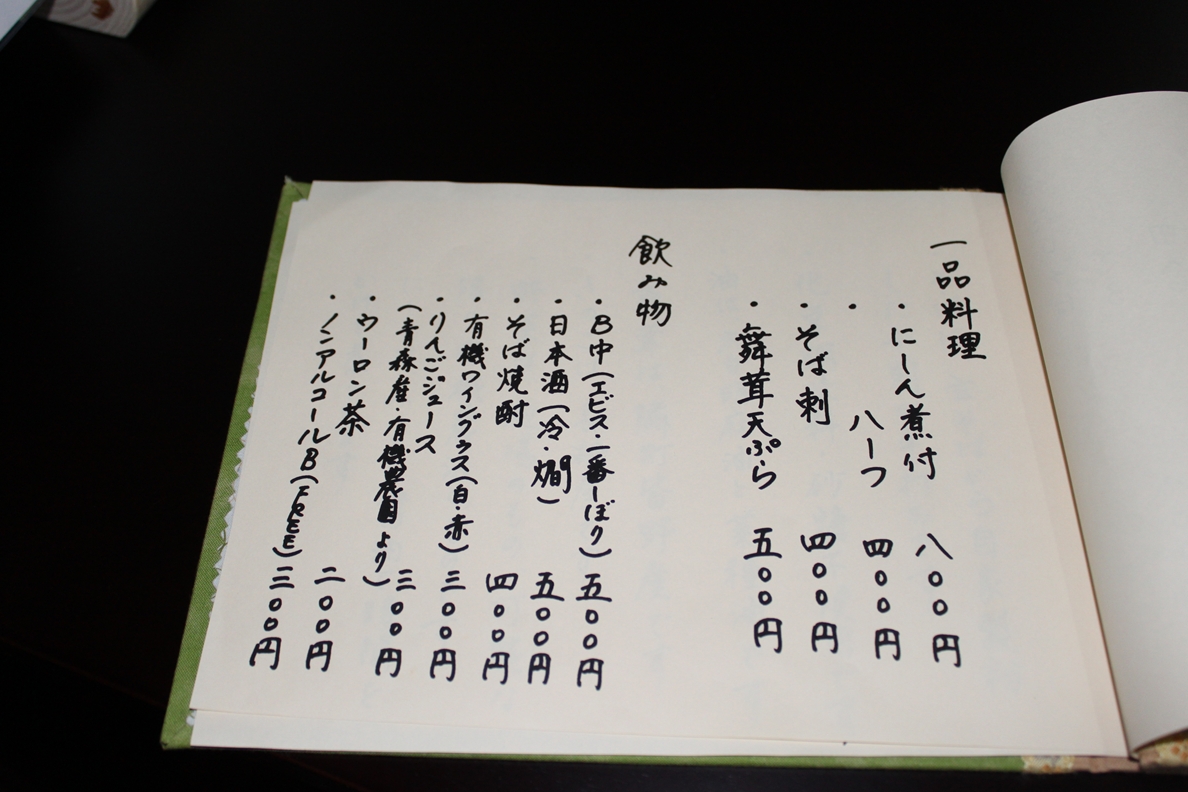 一品料理
・にしん煮付 八〇〇円
・ハーフ 四〇〇円
・そば刺 四〇〇円
・舞茸天ぷら 五〇〇円
飲み物
・B中(エビス・一番しぼり) 五〇〇円
・日本酒(冷・燗) 五〇〇円
・そば焼酎 四〇〇円
・有機ワイングラス(白・赤) 三〇〇円
・りんごジュース 三〇〇円
(青森産・有機農園より)
・ウーロン茶 二〇〇円
・ノンアルコールB(FREE) 三〇〇円